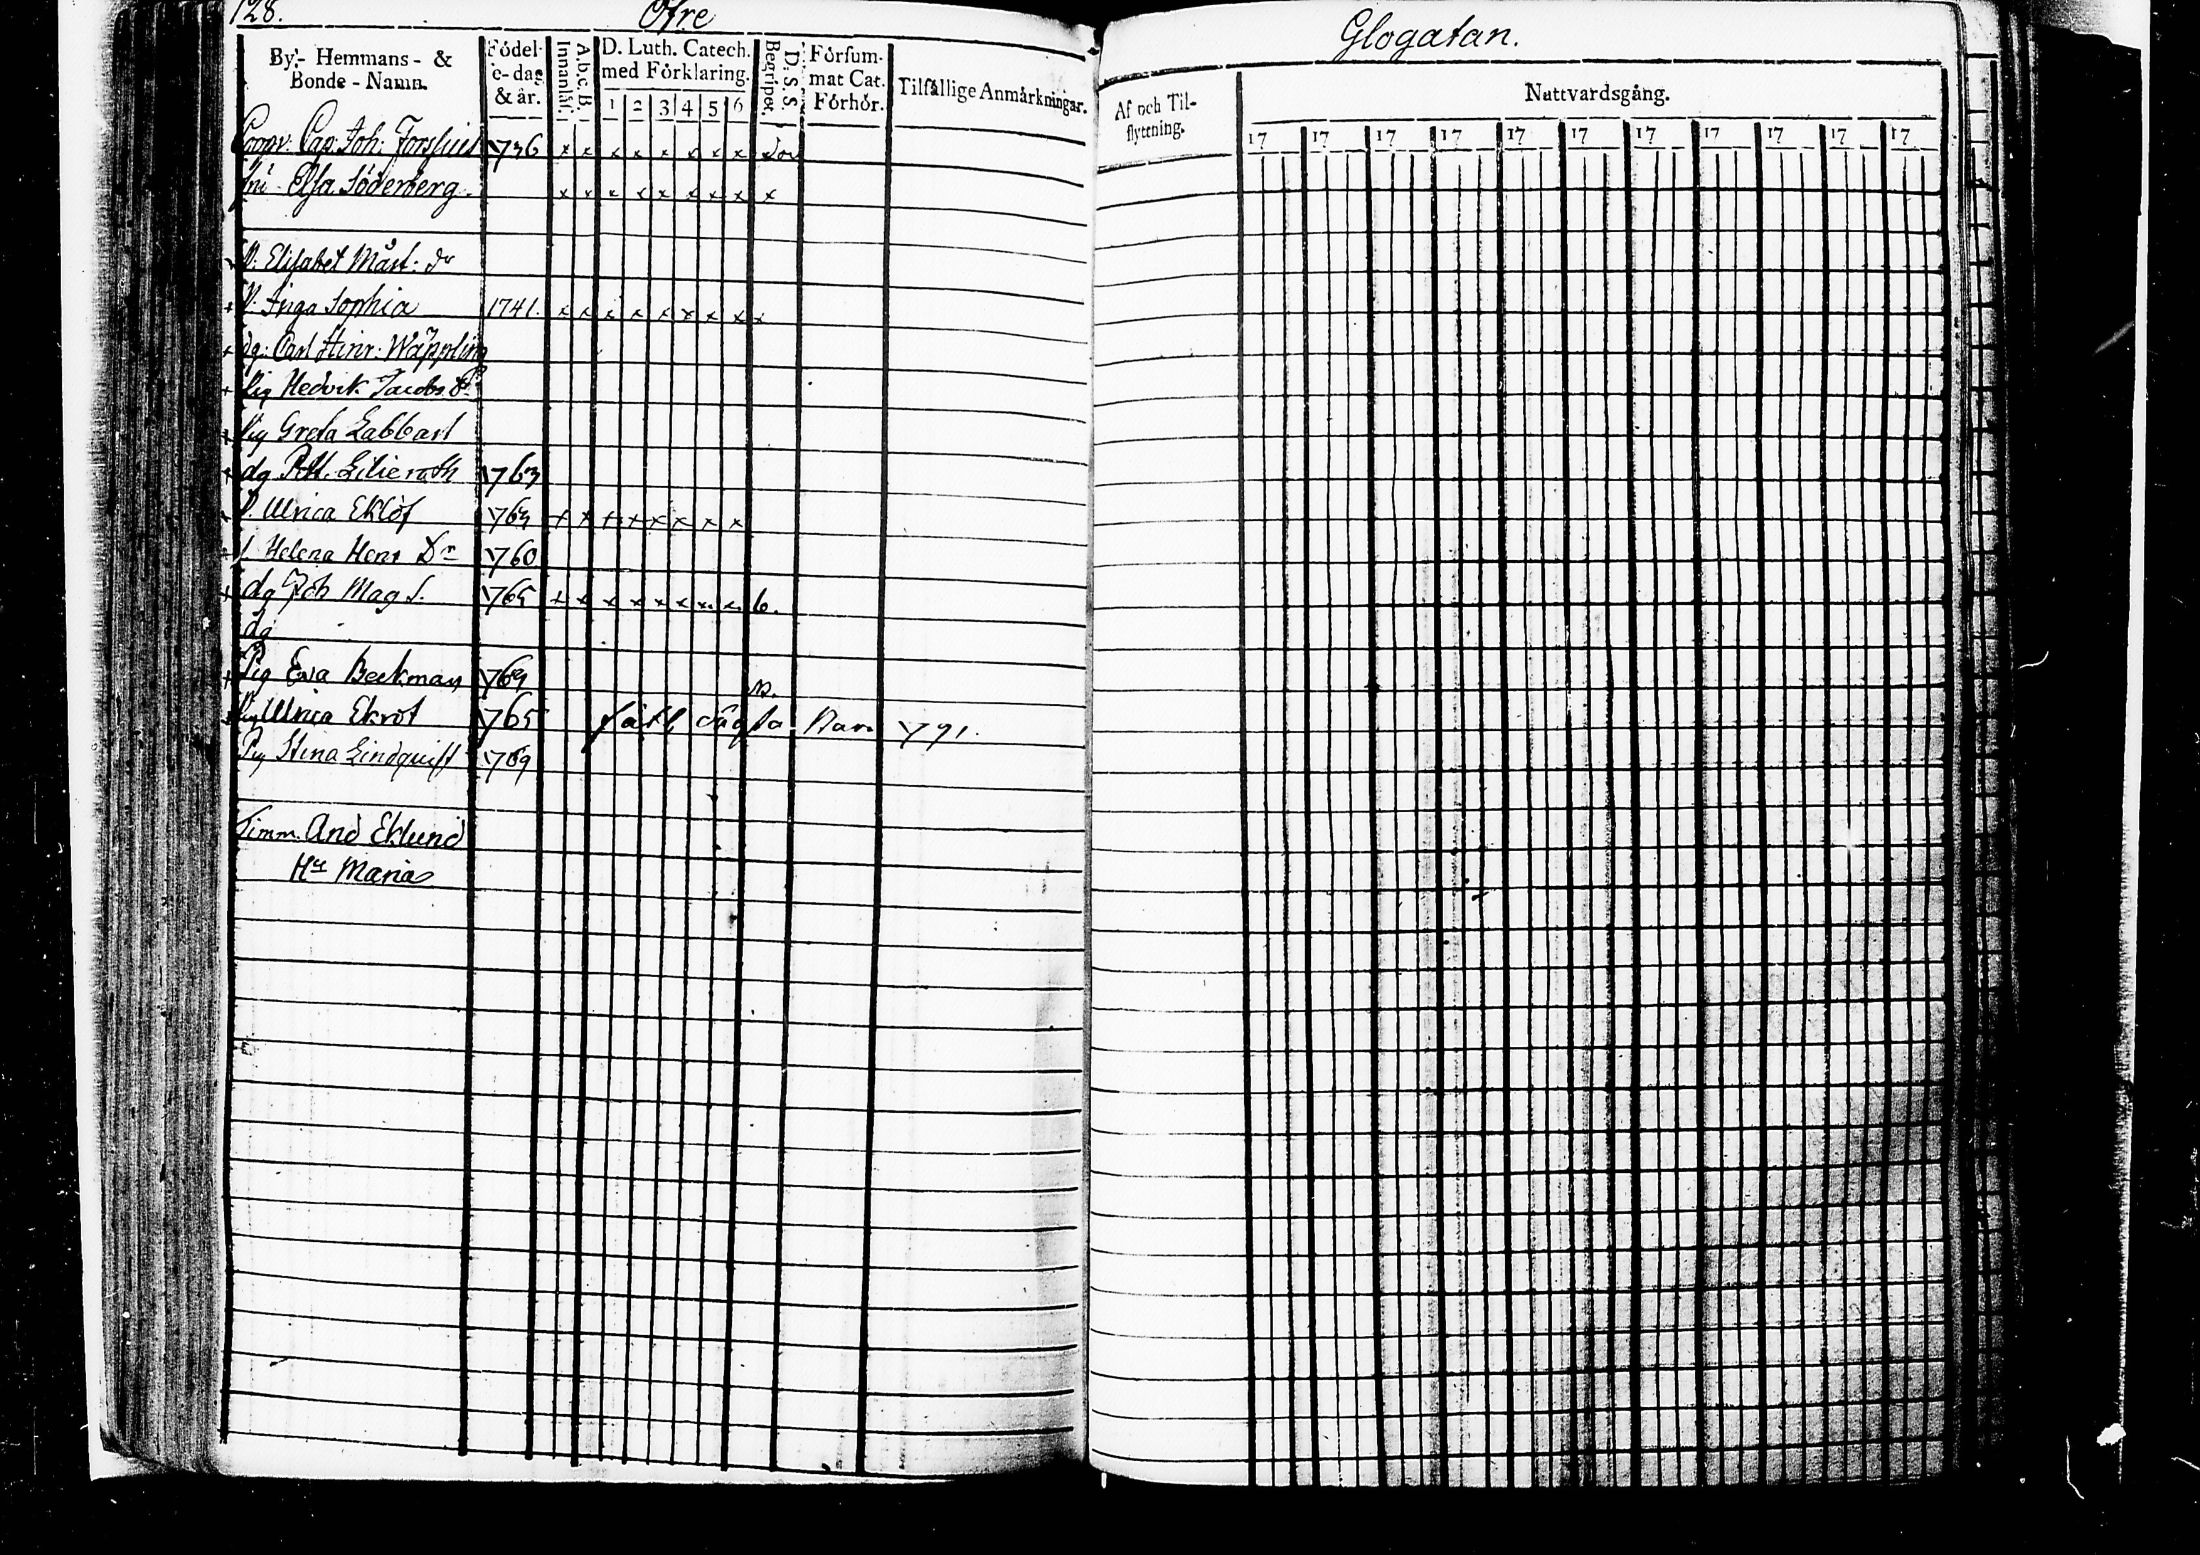 128. Öfre
By- Hemmans- & Bonde-Namn.
Födel-e-dag & år.
Innanläs.
A.b.c.B.
D. Luth. Catech. med Förklaring.
1 2 3 4 5 6
Begripet.
D. S. S.
Försummat Cat. Förhör.
Tilfällige Anmärkningar.
Cap: Joh: 1736 x x x x x x x x
Elsa Söderberg x x x x x x x x x
Elisabet Mårt: dr
Inga Sophia 1741. x x x x x x x x x
dg: Carl Hinr: Wäppling
Pig Hedvik Jacobs Dr
Pig Greta Labbart
dg Lilieroth 1763
P. Ulrica Eklöf x x x x x x x x
Helena Henr Dr 1760
dg Joh Mag S. 1765 x x x x x x x x b.
dg
Pig Eva Beckman 1769
Pig Ulrica Ekrot 1765 Barn 1791.
Pig Stina Lindquist 1769
Timm. And Eklund
Hu Maria
Glogatan.
Af och Til-flyttning.
Nattvardsgång.
17 17 17 17 17 17 17 17 17 17 17